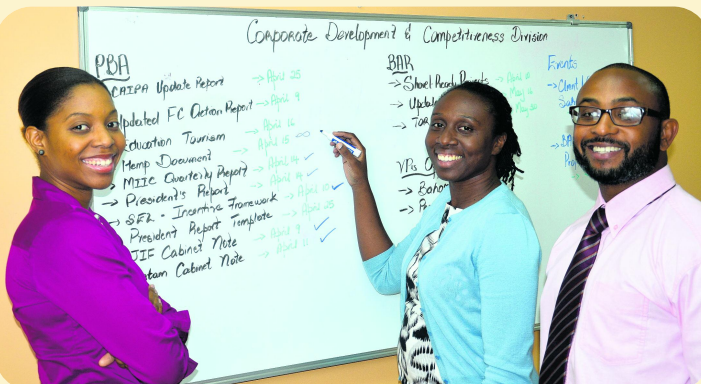 Corporate Development & Competitiveness Division
PBA
CAIPA Update Report → April 25
Updated FC Action Report → April 9
Education Tourism → April 16
Hemp Document → April 15
MIIC Quarterly Report → April 14 ✓
→ President's Report → April 14 ✓
→ SEZ - Incentive Framework → April 10 ✓
President Report Template → April 25
JIF Cabinet Note → April 9 ✓
Cabinet Note → April 11 ✓
BAR
→ Shovel Ready Projects → April
→ May
→
VPs
→
→
Events
→
→